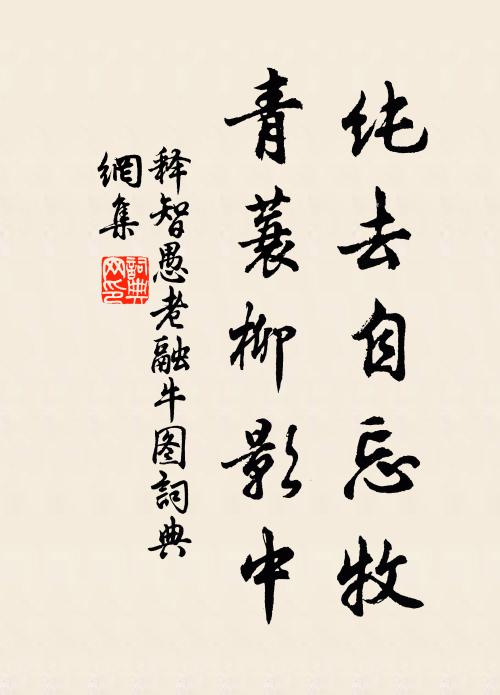 纯去自忘牧
青蓑柳影中
释智愚老融牛图詞典
網集
詞典網印